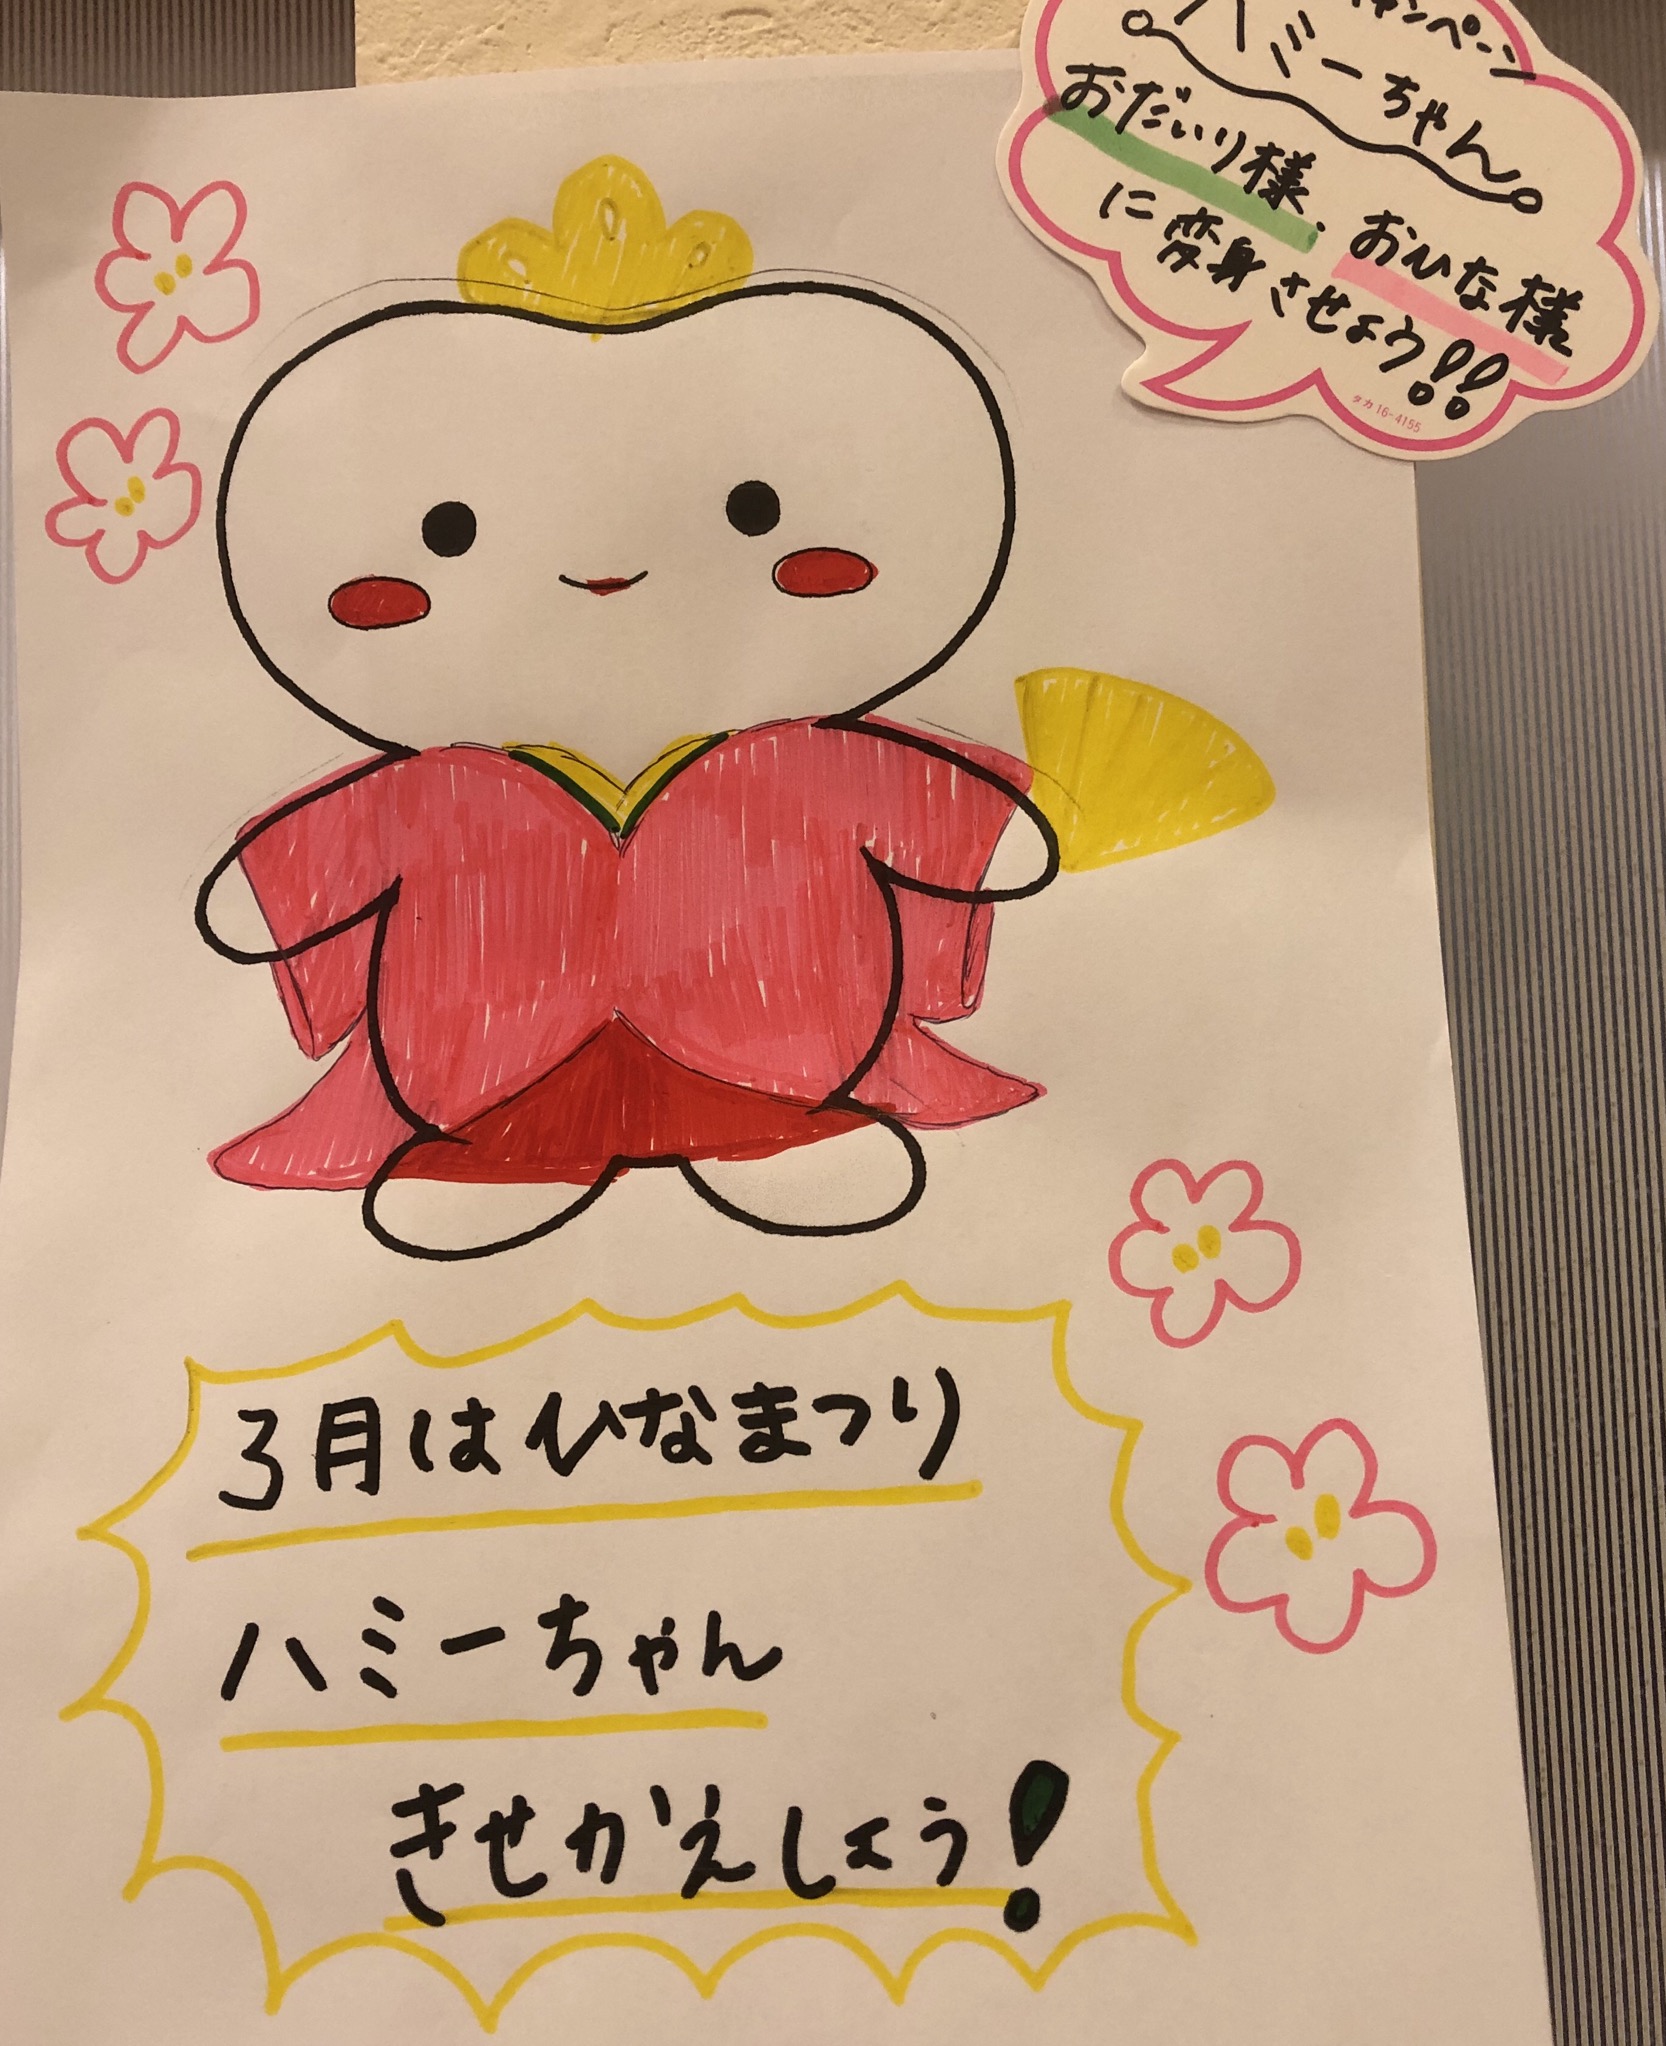 キャンペーン
ハミーちゃん
おだいり様、おひな様
に変身させよう!!
タカ 16-4155
3月はひなまつり
ハミーちゃん
きせかえしよう!